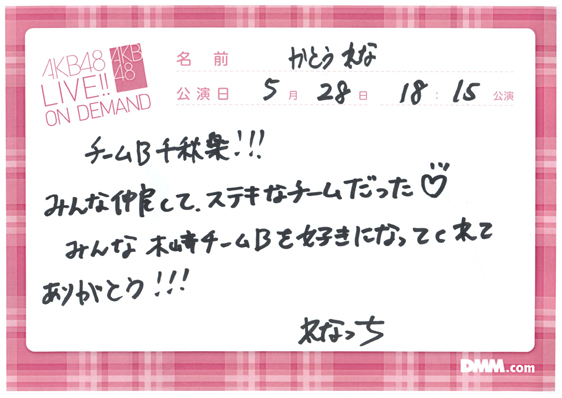 AKB48
LIVE!!
ON DEMAND
AKB
48
名前 かとうれな
公演日 5月28日 18:15公演
チームB千秋楽!!!
みんな仲良くて、ステキなチームだった♡
みんな 木﨑チームBを好きになってくれて
ありがとう!!!
れなっち
DMM.com